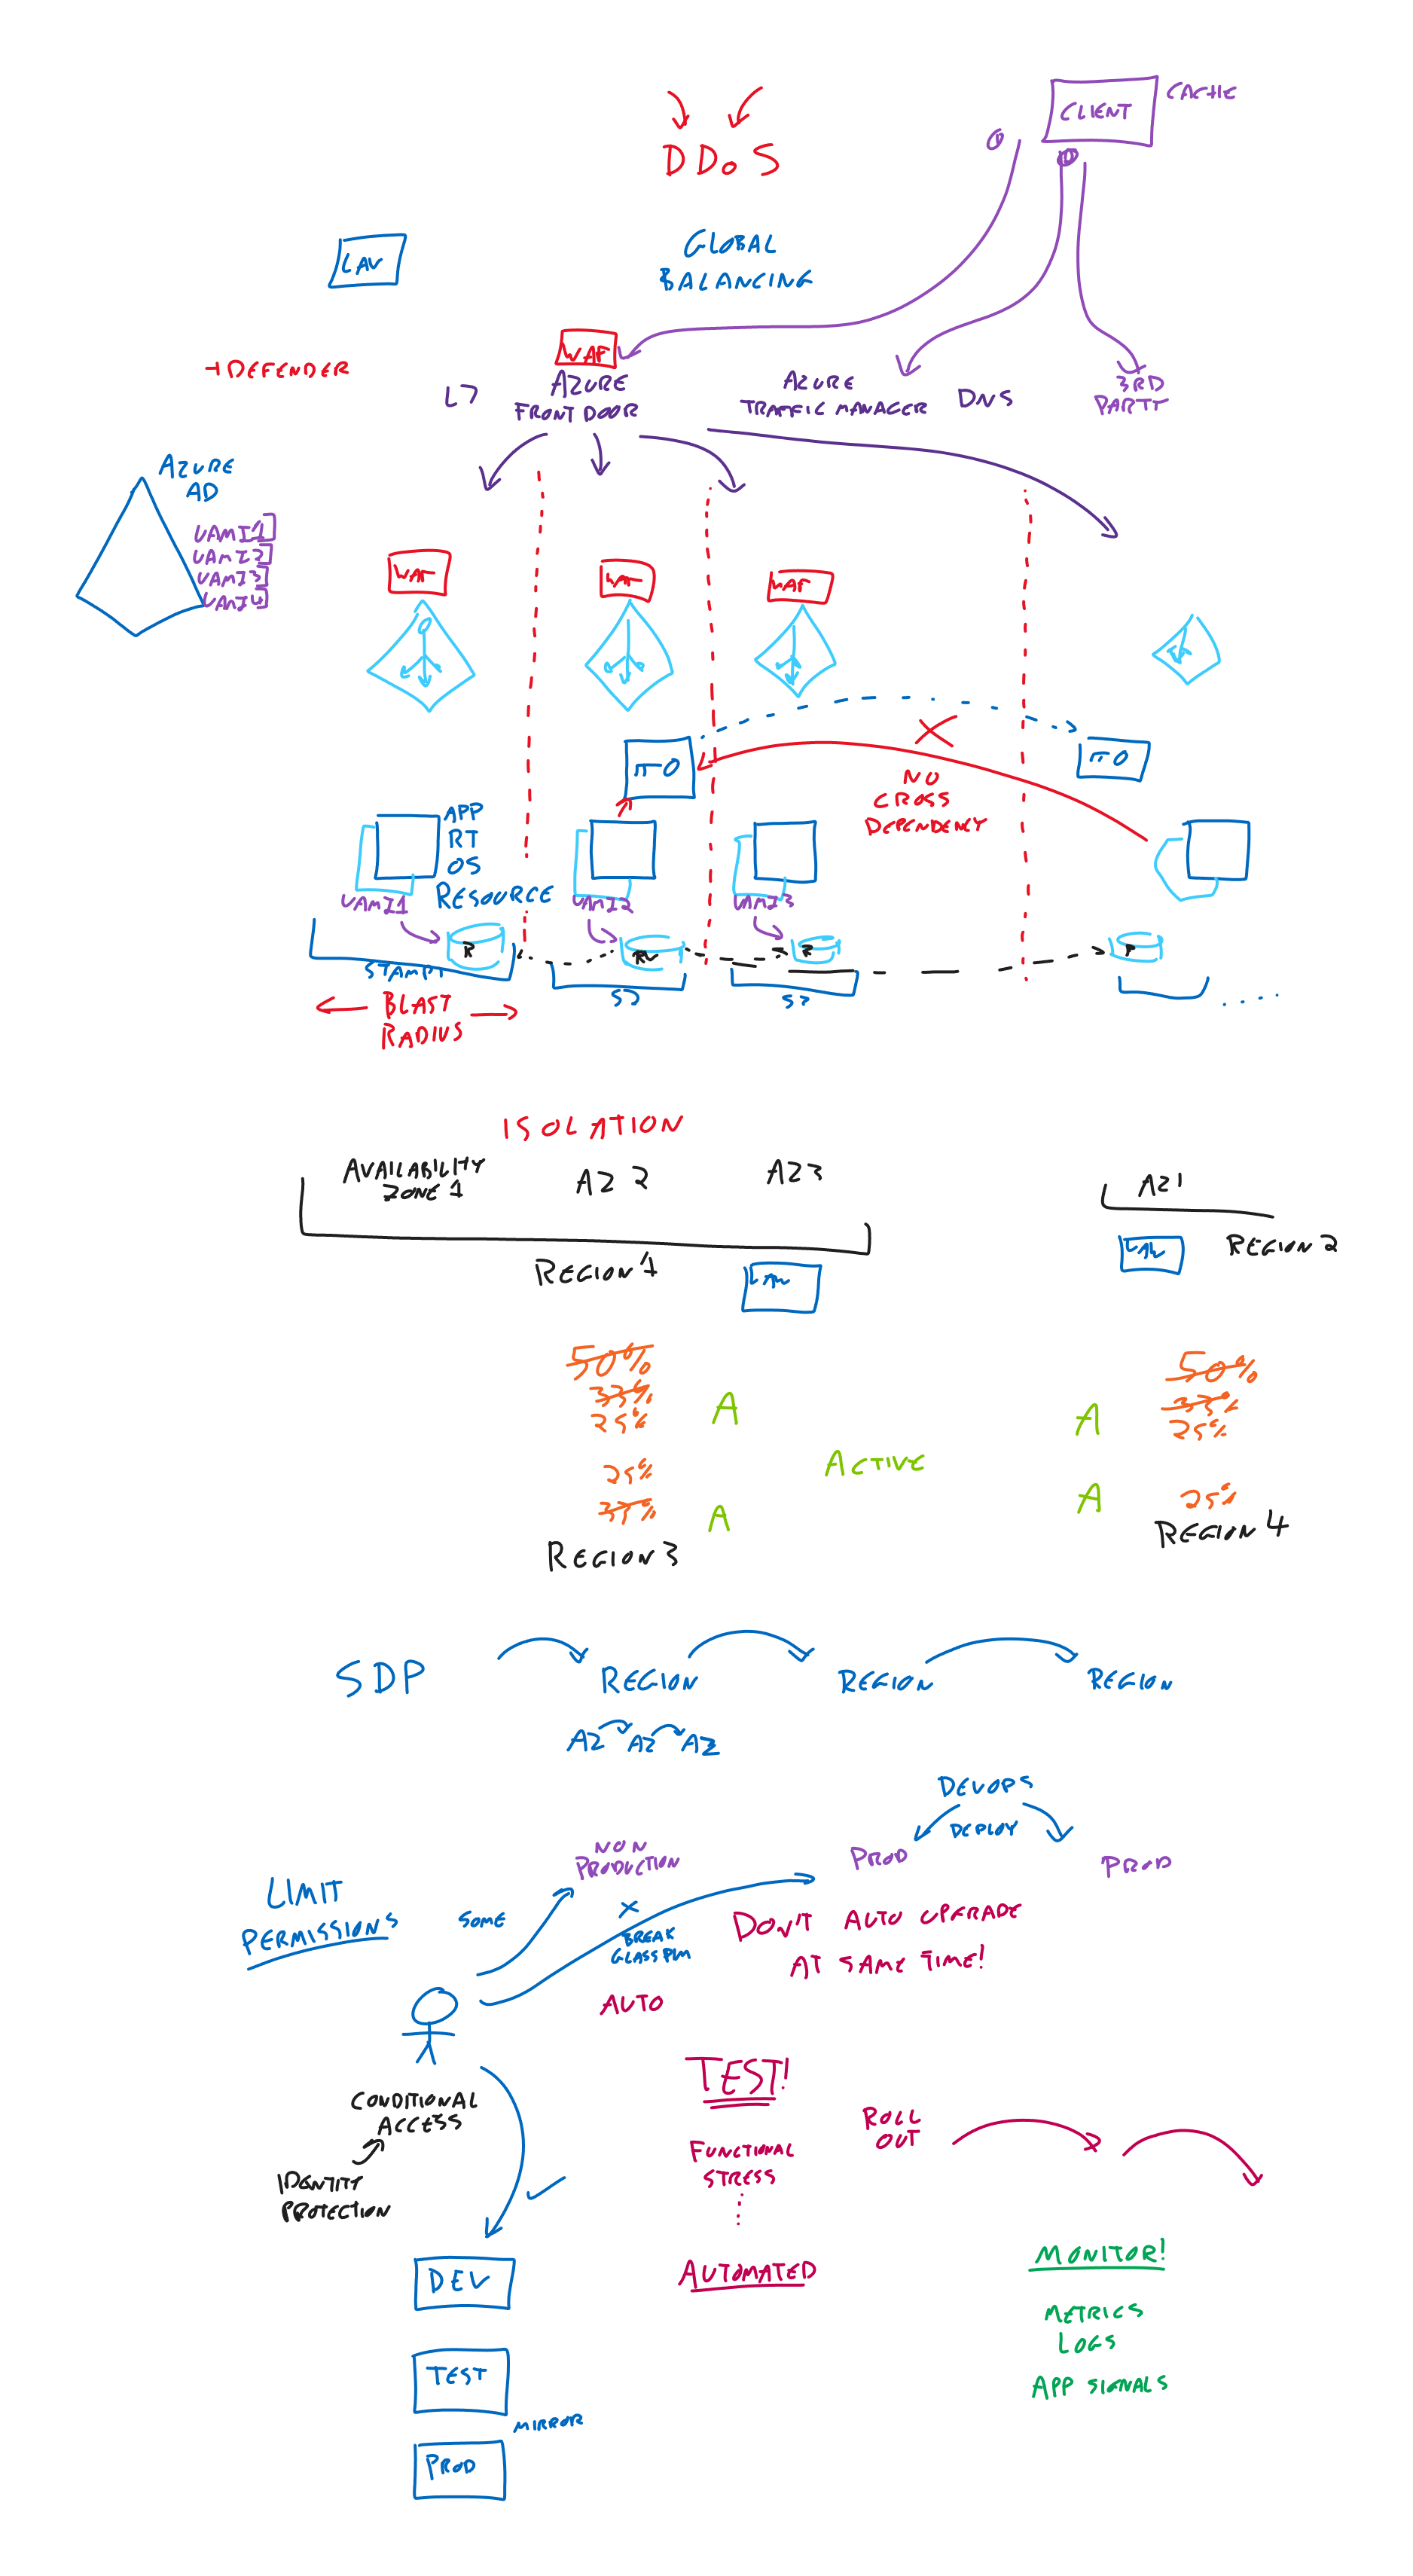 CLIENT
CACHE
DDoS
GLOBAL
BALANCING
LAW
WAF
→ DEFENDER
L7
AZURE
FRONT DOOR
AZURE
TRAFFIC MANAGER
DNS
3RD
PARTY
AZURE
AD
UAMI1
UAMI2
UAMI3
UAMI4
WAF
WAF
WAF
NO
CROSS
DEPENDENCY
APP
RT
OS
RESOURCE
UAMI1
UAMI2
UAMI3
R
R
R
STAMP1
S2
S3
BLAST
RADIUS
ISOLATION
AVAILABILITY
ZONE 1
AZ 2
AZ3
AZ1
REGION 1
LAW
LAW
REGION 2
50%
33%
25%
A
A
50%
33%
25%
ACTIVE
25%
33%
A
A
25%
REGION 3
REGION 4
SDP
REGION
REGION
REGION
AZ AZ AZ
DEVOPS
DEPLOY
NON
PRODUCTION
PROD
PROD
LIMIT
PERMISSIONS
SOME
X
BREAK
GLASS PIM
DON'T AUTO UPGRADE
AT SAME TIME!
AUTO
TEST!
CONDITIONAL
ACCESS
IDENTITY
PROTECTION
ROLL
OUT
FUNCTIONAL
STRESS
AUTOMATED
MONITOR!
METRICS
LOGS
APP SIGNALS
DEV
TEST
MIRROR
PROD